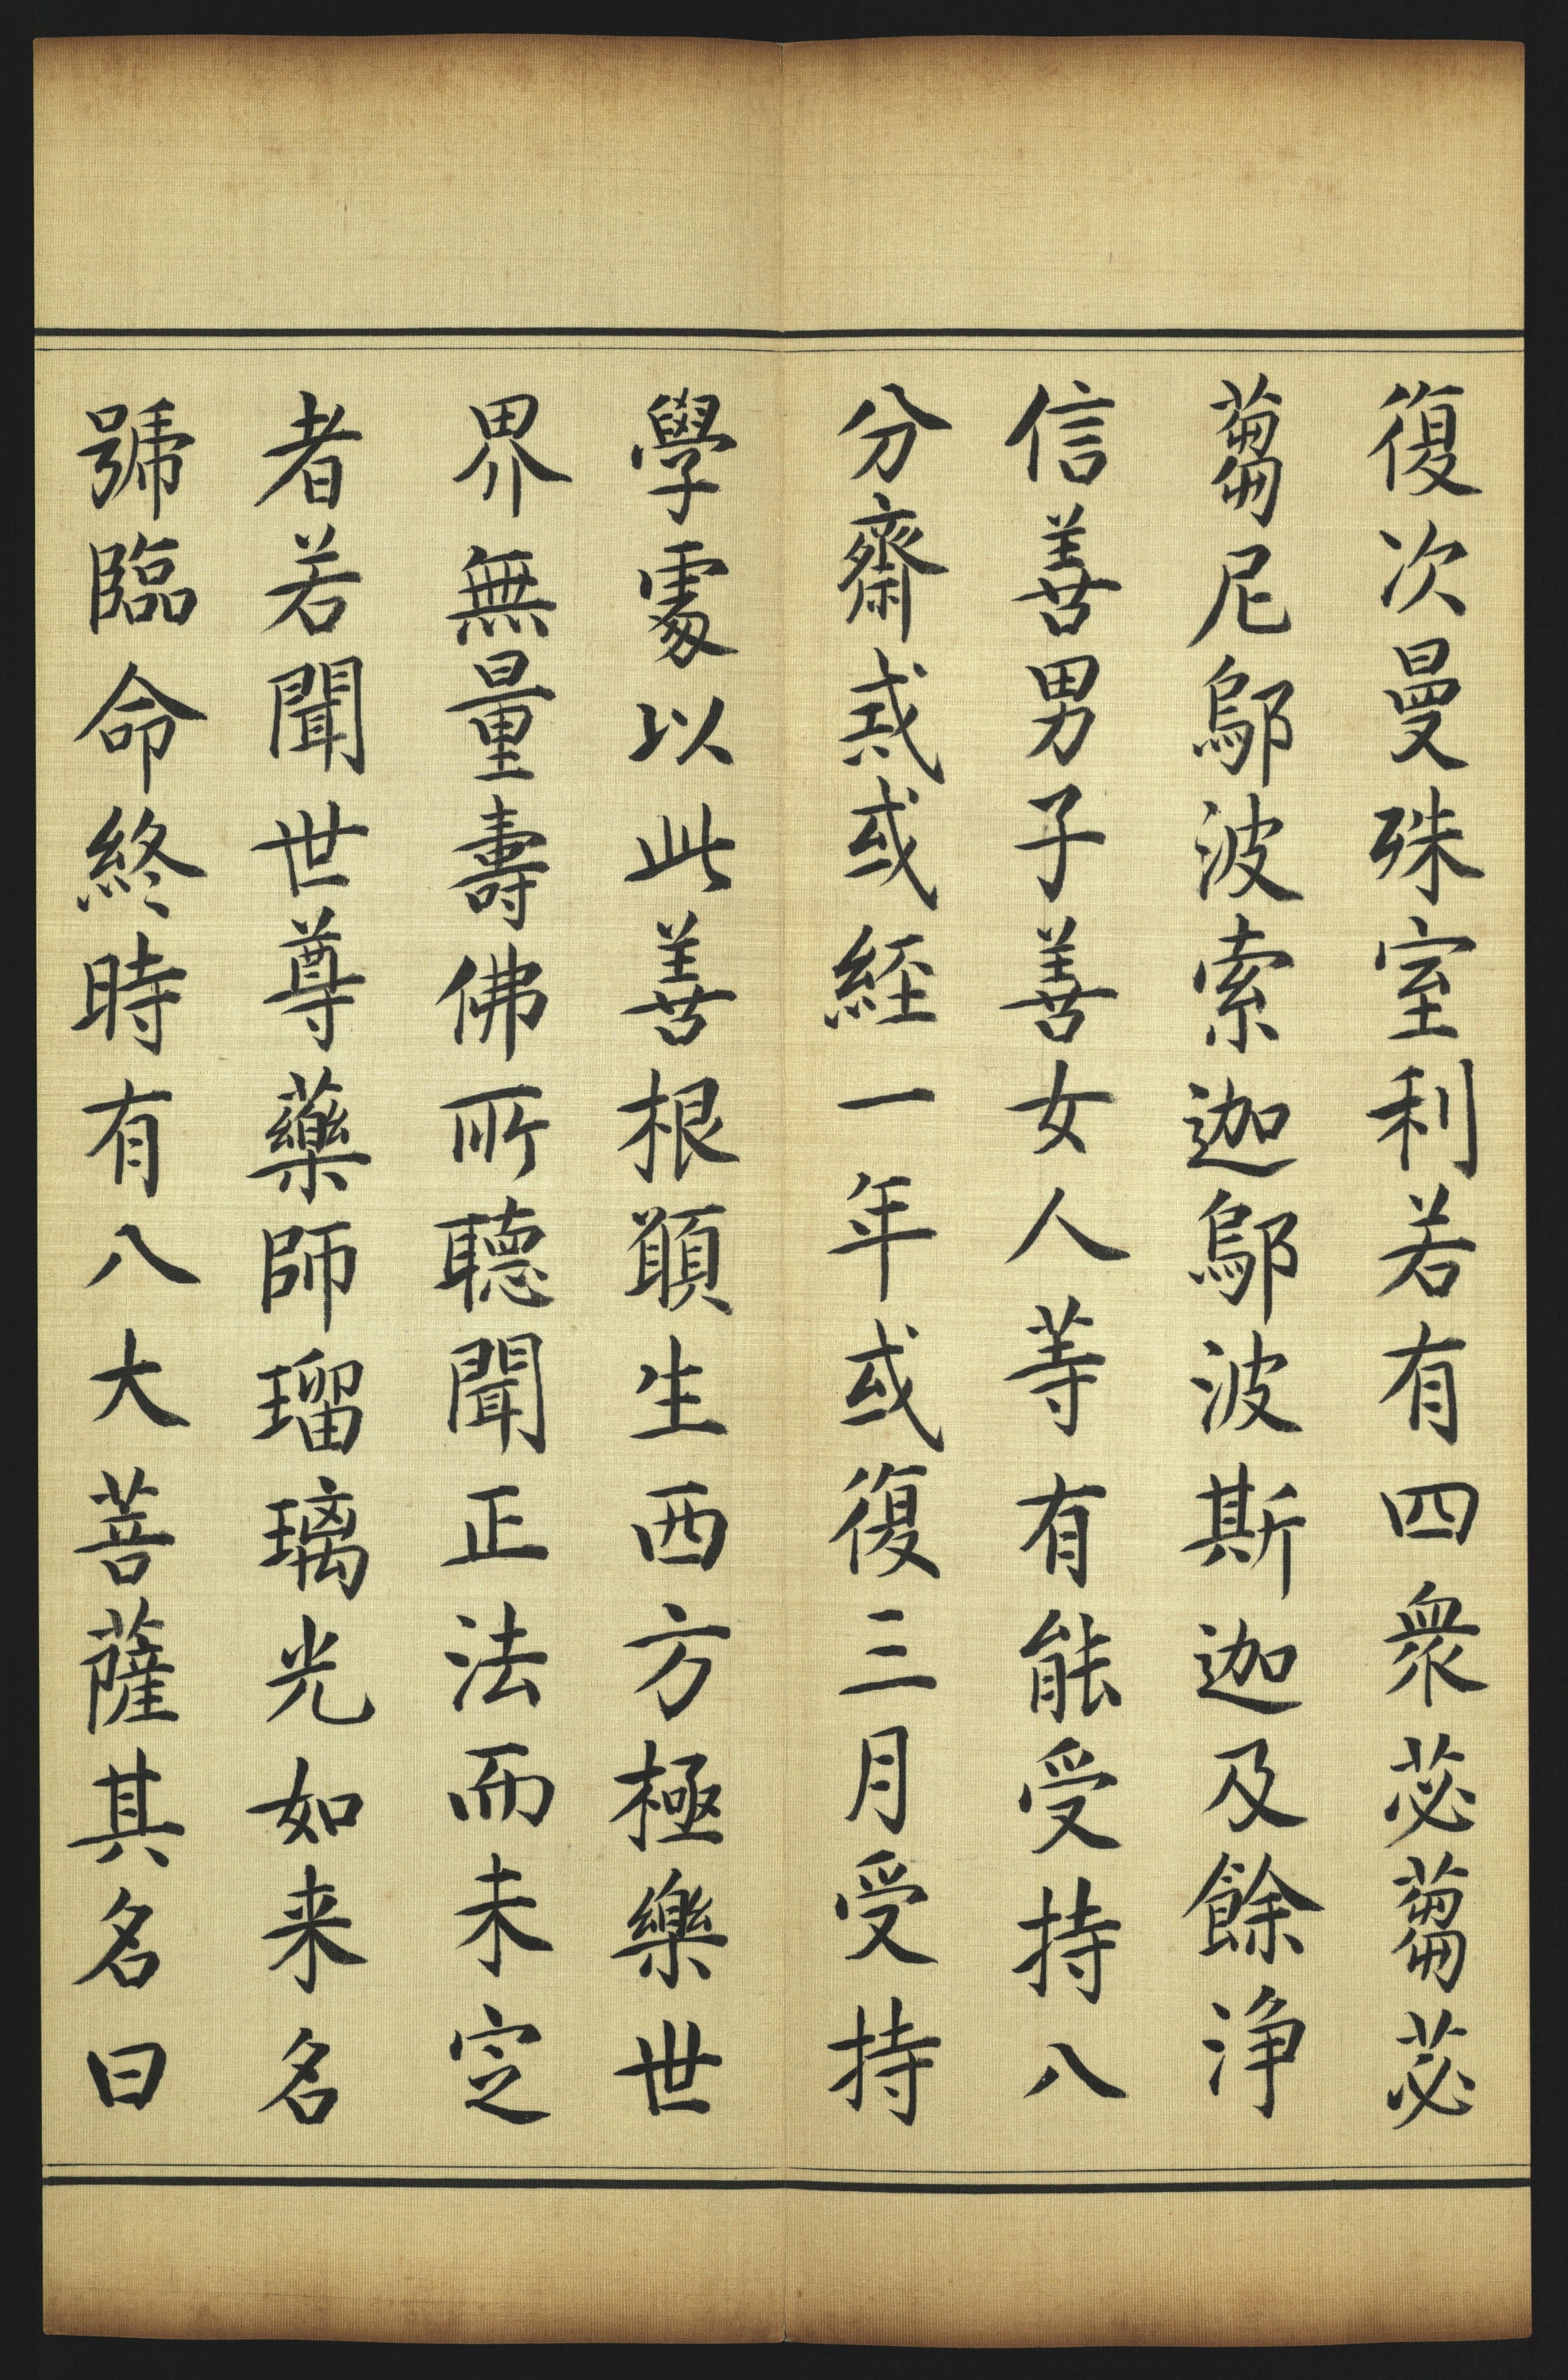 復次曼殊室利若有四衆苾蒭苾
蒭尼鄔波索迦鄔波斯迦及餘浄
信善男子善女人等有能受持八
分齋戒或経一年或復三月受持
學處以此善根願生西方極樂世
界無量壽佛所聽聞正法而未定
者若聞世尊藥師瑠璃光如来名
號臨命終時有八大菩薩其名曰